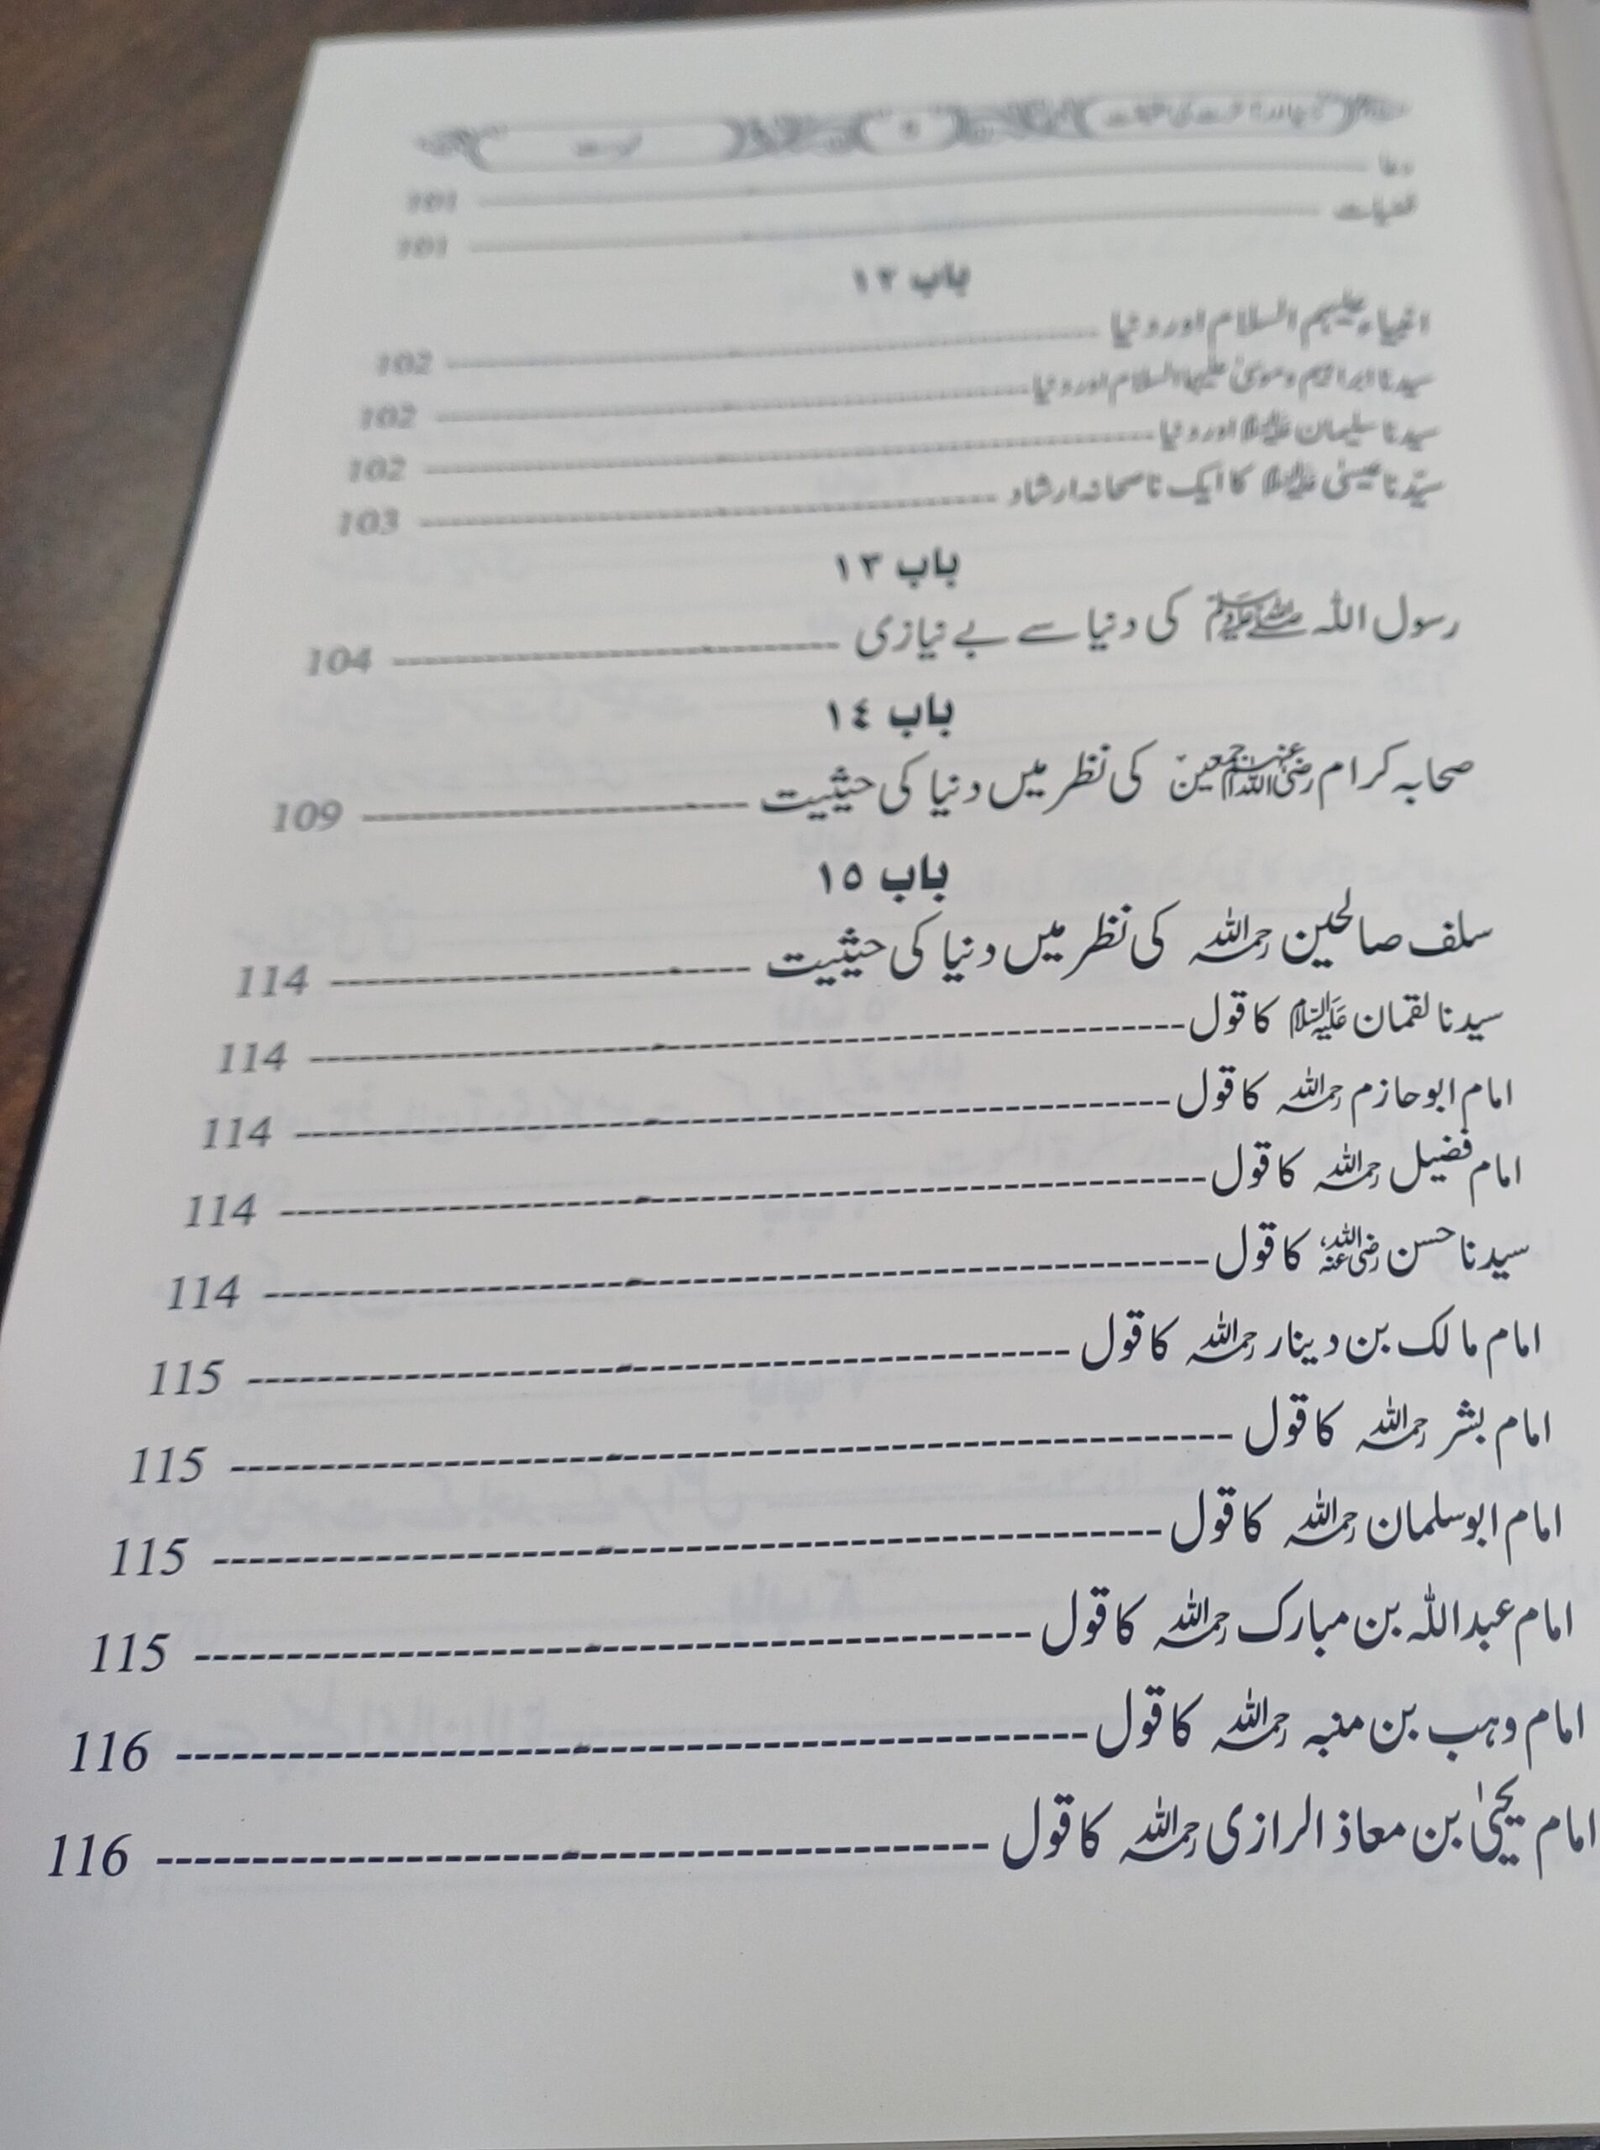 دنیا اور آخرت کی حقیقت
فہرست
دعا ---------- 101
فتنیات ---------- 101
باب ١٢
انبیاء علیہم السلام اور دنیا ---------- 102
سیدنا ابراہیم و موسیٰ علیہما السلام اور دنیا ---------- 102
سیدنا سلیمان علیہ السلام اور دنیا ---------- 102
سیّدنا عیسیٰ علیہ السلام کا ایک ناصحانہ ارشاد ---------- 103
باب ١٣
رسول اللہ صلی اللہ علیہ وسلم کی دنیا سے بے نیازی ---------- 104
باب ١٤
صحابہ کرام رضی اللہ عنہم اجمعین کی نظر میں دنیا کی حیثیت ---------- 109
باب ١٥
سلف صالحین رحمہ اللہ کی نظر میں دنیا کی حیثیت ---------- 114
سیدنا لقمان علیہ السلام کا قول ---------- 114
امام ابو حازم رحمہ اللہ کا قول ---------- 114
امام فضیل رحمہ اللہ کا قول ---------- 114
سیدنا حسن رضی اللہ عنہ کا قول ---------- 114
امام مالک بن دینار رحمہ اللہ کا قول ---------- 115
امام بشر رحمہ اللہ کا قول ---------- 115
امام ابو سلمان رحمہ اللہ کا قول ---------- 115
امام عبداللہ بن مبارک رحمہ اللہ کا قول ---------- 115
امام وہب بن منبہ رحمہ اللہ کا قول ---------- 116
امام یحییٰ بن معاذ الرازی رحمہ اللہ کا قول ---------- 116